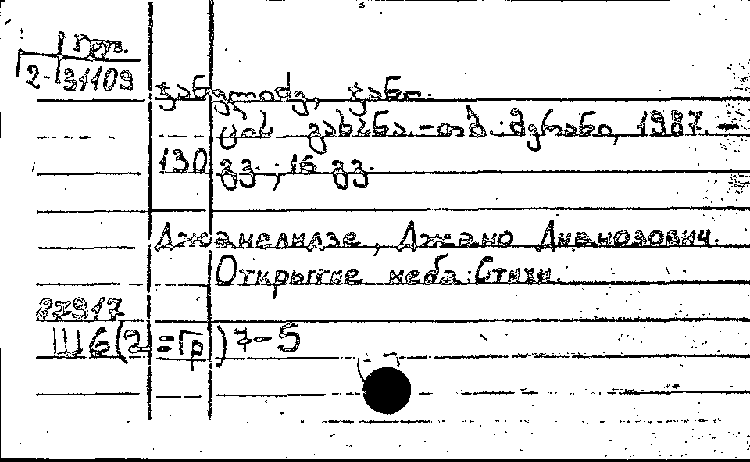 Груз.
2-31109
ჯანელიძე, ჯანო.
ცის გახსნა. -თბ.: მერანი, 1987. -
130 გვ.; 16 გვ.
Джанелидзе, Джано Диамозович.
Открытие неба: Стихи.
87917
Ш6(2=Гр)7-5